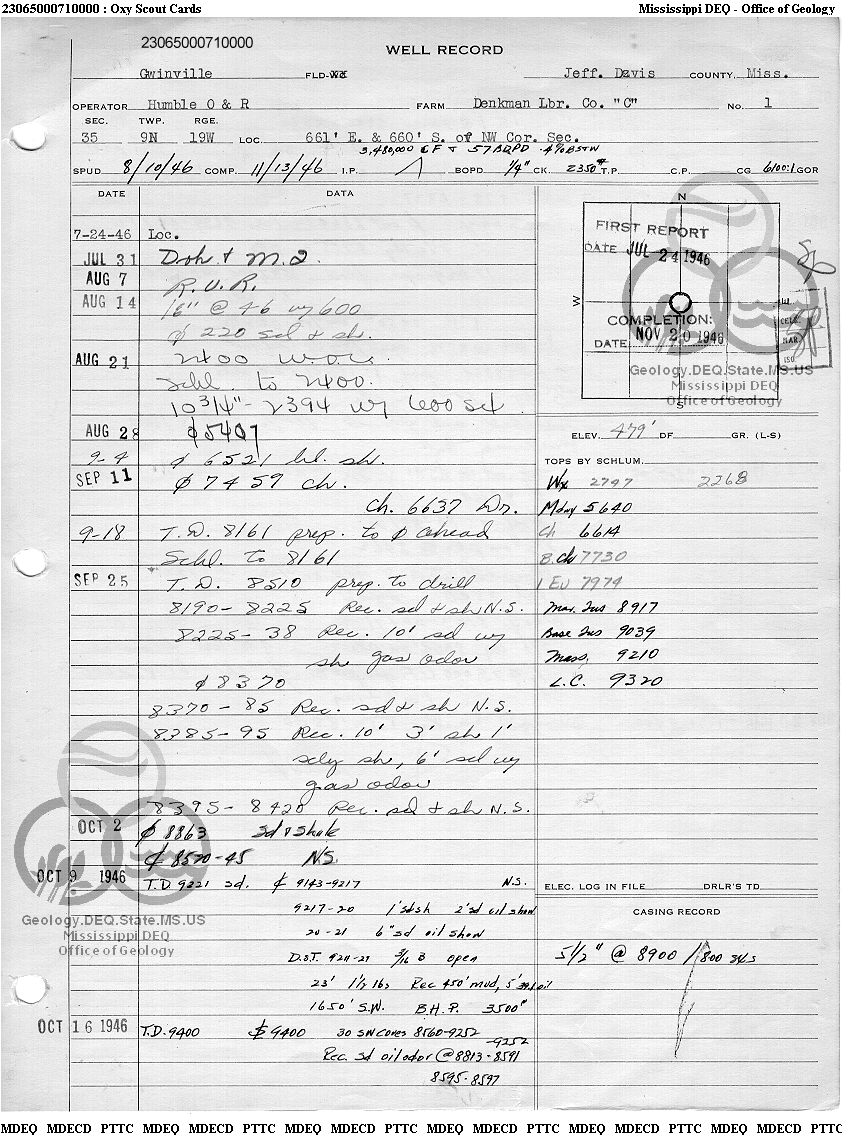 23065000710000 : Oxy Scout Cards Mississippi DEQ - Office of Geology
23065000710000
WELL RECORD
Gwinville FLD- Jeff. Davis COUNTY, Miss.
OPERATOR Humble O & R FARM Denkman Lbr. Co. "C" No. 1
SEC. TWP. RGE.
35 9N 19W LOC. 661' E. & 660' S. of NW Cor. Sec.
3,480,000 CF + 57 BOPD .4% BS+W
SPUD 8/10/46 COMP. 11/13/46 I.P. BOPD 1/4" CK. 2350# T.P. C.P. CG 6100:1 GOR
DATE DATA
7-24-46 Loc.
JUL 31
AUG 7 R.U.R.
AUG 14 16" @ 46 w/ 600
₵ 220 sd & sh.
AUG 21 2400 W.O.C.
Schl. to 2400.
10 3/4" - 2394 w/ 600 sx
AUG 28 ₵ 5407
9-4 ₵ 6521 sh.
SEP 11 ₵ 7459 ch.
Ch. 6637 Dr.
9-18 T.D. 8161 prep. to ₵ ahead
Schl. to 8161
SEP 25 T.D. 8510 prep. to drill
8190-8225 Rec. sd & sh N.S.
8225-38 Rec. 10' sd w/
sh gas odor
₵ 8370
8370-85 Rec. sd & sh N.S.
8385-95 Rec. 10' 3' sh 1'
sdy sh, 6' sd w/
gas odor
8395-8420 Rec. sd & sh N.S.
OCT 2 ₵ 8863 Sd & Shale
₵ 8520-45 N.S.
OCT 9 1946 T.D. 9221 sd. ₵ 9143-9217 N.S.
9217-20 1' sd sh 2' sd oil show
20-21 6" sd oil show
D.S.T. 9211-21 3/16 B open
23' 1 1/2 lbs Rec 450' mud, 5' oil
1650' S.W. B.H.P. 3500#
OCT 16 1946 T.D. 9400 ₵ 9400 30 SW Cores 8560-9252
-9252
Rec. sd oil odor @ 8813-8591
8595-8597
N
W
E
S
FIRST REPORT
DATE JUL 24 1946
COMPLETION:
DATE NOV 20 1946
CELE.
MAR
ISO.
Geology.DEQ.State.MS.US
Mississippi DEQ
Office of Geology
ELEV. 479' DF GR. (L-S)
TOPS BY SCHLUM.
Wx 2797 2268
Mdwy 5640
Ch 6614
B. Ch 7730
Eu 7974
Mar. Tus 8917
Base Tus 9039
Mass. 9210
L.C. 9320
ELEC. LOG IN FILE DRLR'S TD
CASING RECORD
5 1/2" @ 8900 / 800 sxs
Geology.DEQ.State.MS.US
Mississippi DEQ
Office of Geology
MDEQ MDECD PTTC MDEQ MDECD PTTC MDEQ MDECD PTTC MDEQ MDECD PTTC MDEQ MDECD PTTC MDEQ MDECD PTTC